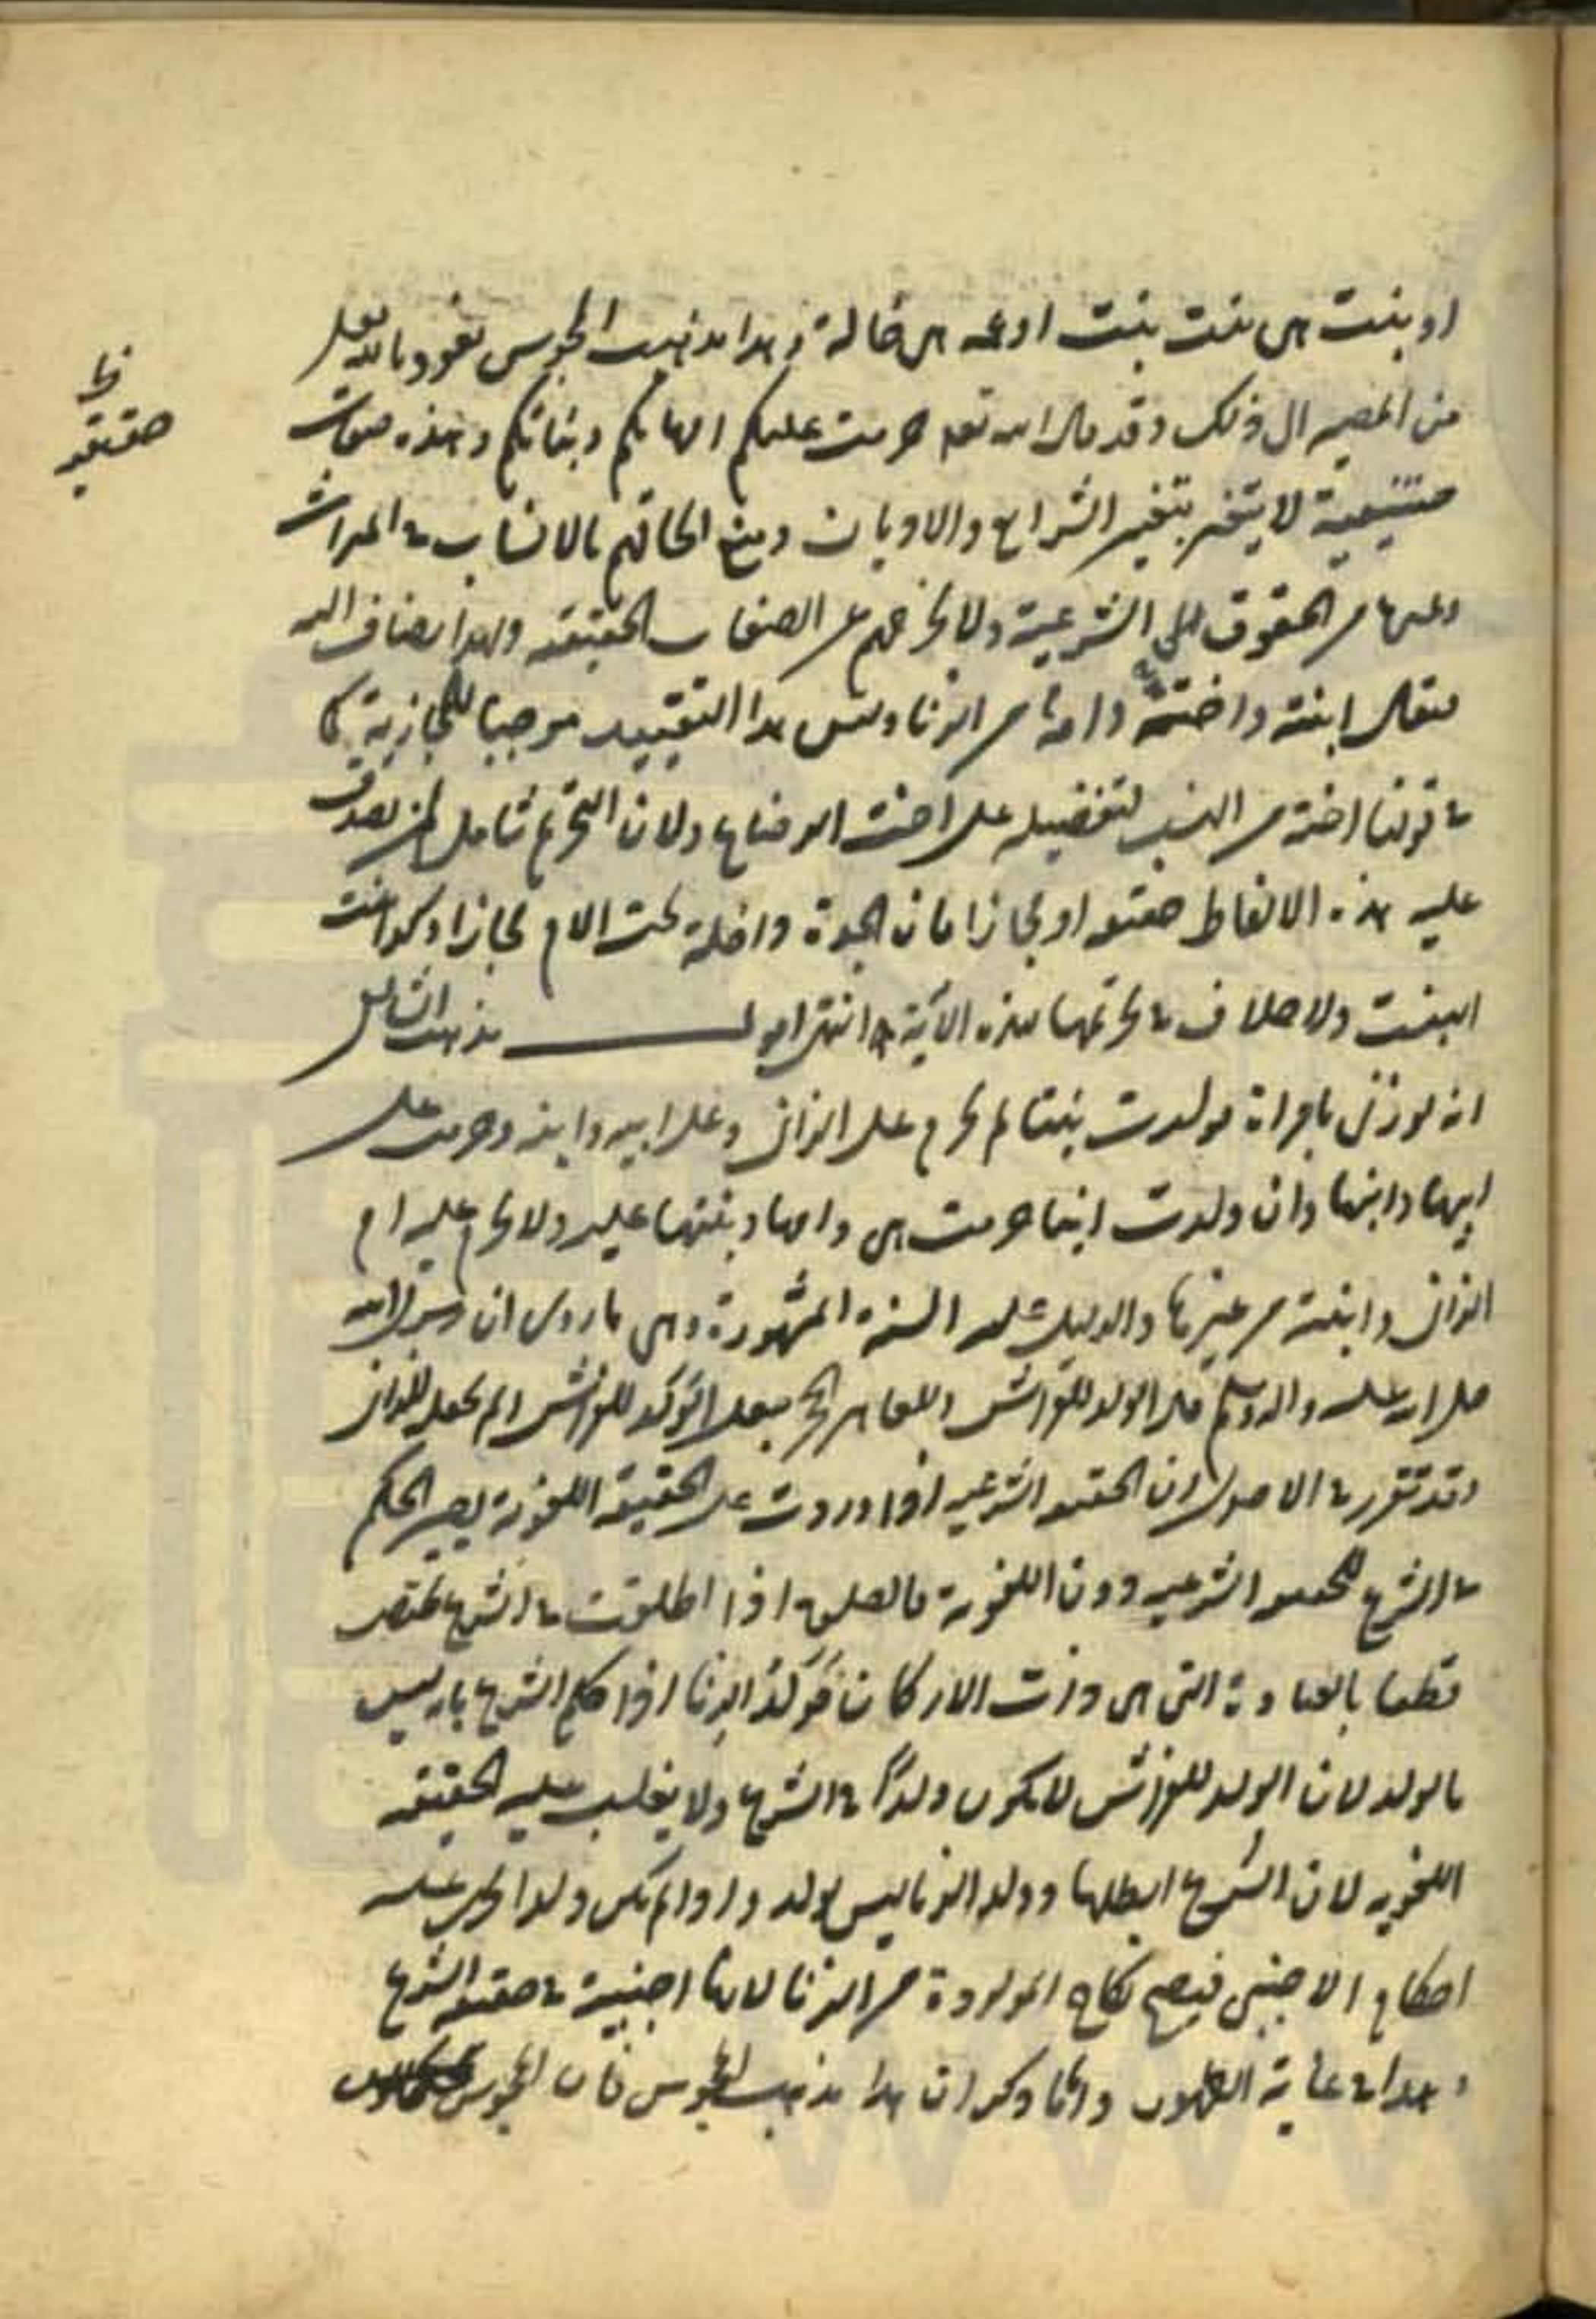 او بنت هى بنت بنت او عمه هى خالة و هذا مذهب المجوس نعوذ بالله
من المصير الى ذلك و قد قال الله تعه حرمت عليكم امهاتكم و بناتكم و هذه صفات
حقيقية لا يتغير بتغير الشرايع والاديان و منع الحاقهم بالانساب فى الميراث
وغيرها من الحقوق الشرعية ولا يخرجهم عن الصفات الحقيقه ولهذا يضاف اليه
فيقال ابنته و اخته و امه من الزنا وليس هذا التقييد موجبا للمجازية كما
فى قولنا اخته من النسب لتفضيله على اخت الرضاع ولان التحريم شامل لمن يصدق
عليه هذه الالفاظ حقيقه او مجازا فان الجدة داخلة تحت الام مجازا وكذا بنت
البنت ولا خلاف فى تحريمها بهذه الآية انتهى اقول مذهب الشافعى
انه لو زنى بامراة فولدت بنتا لم تحرم على الزانى و على ابيه و ابنه و حرمت على
ابيها و ابنها و ان ولدت ابنا حرمت هى و امها و بنتها عليه ولا تحرم عليه ام
الزانى و ابنته من غيرها والدليل عليه السنة المشهورة وهى ما روى ان رسول الله
صلى الله عليه و اله و سلم قال الولد للفراش وللعاهر الحجر فجعل الولد للفراش و لم يجعله للزانى
وقد تقرر فى الاصول ان الحقيقه الشرعيه اذا وردت على الحقيقة اللغوية يصير الحكم
فى الشرع للحقيقه الشرعيه دون اللغوية فالصلوة اذا اطلقت فى الشرع تختص
قطعا بالعبادة التى هى ذات الاركان فولد الزنا اذا حكم الشرع بانه ليس
بالولد لان الولد للفراش لا يكون ولدًا فى الشرع ولا يغلب عليه الحقيقه
اللغويه لان الشرع ابطلها و ولد الزنا ليس بولد و اذا لم يكن ولدا يجرى عليه
احكام الاجنبى فيصح نكاح المولودة من الزنا لانها اجنبية فى حقيقه الشرع
و هذا فى غاية الظهور و اما ما ذكر ان هذا مذهب المجوس فان المجوس
حقيقيه